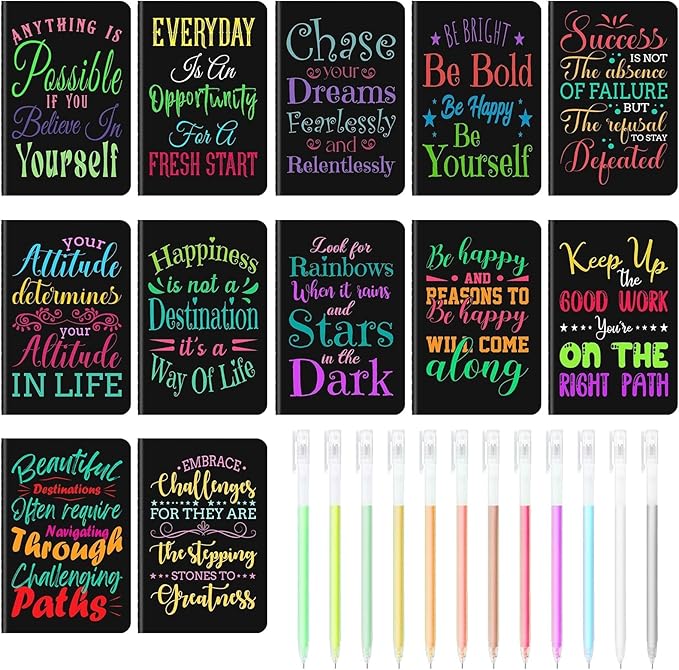 ANYTHING IS
Possible
IF YOU
Believe In
Yourself
EVERYDAY
Is An
Opportunity
For A
FRESH START
Chase
your
Dreams
Fearlessly
and
Relentlessly
BE BRIGHT
Be Bold
Be Happy
Be
Yourself
Success
IS NOT
The absence
OF FAILURE
BUT
The refusal
TO STAY
Defeated
your
Attitude
determines
your
Altitude
IN LIFE
Happiness
is not a
Destination
it's a
Way Of Life
Look for
Rainbows
When it rains
and
Stars
in the
Dark
Be happy
AND
REASONS TO
Be happy
WILL COME
along
Keep Up
the
GOOD WORK
You're
ON THE
RIGHT PATH
Beautiful
Destinations
Often require
Navigating
Through
Challenging
Paths
EMBRACE
Challenges
FOR THEY ARE
The stepping
STONES TO
Greatness